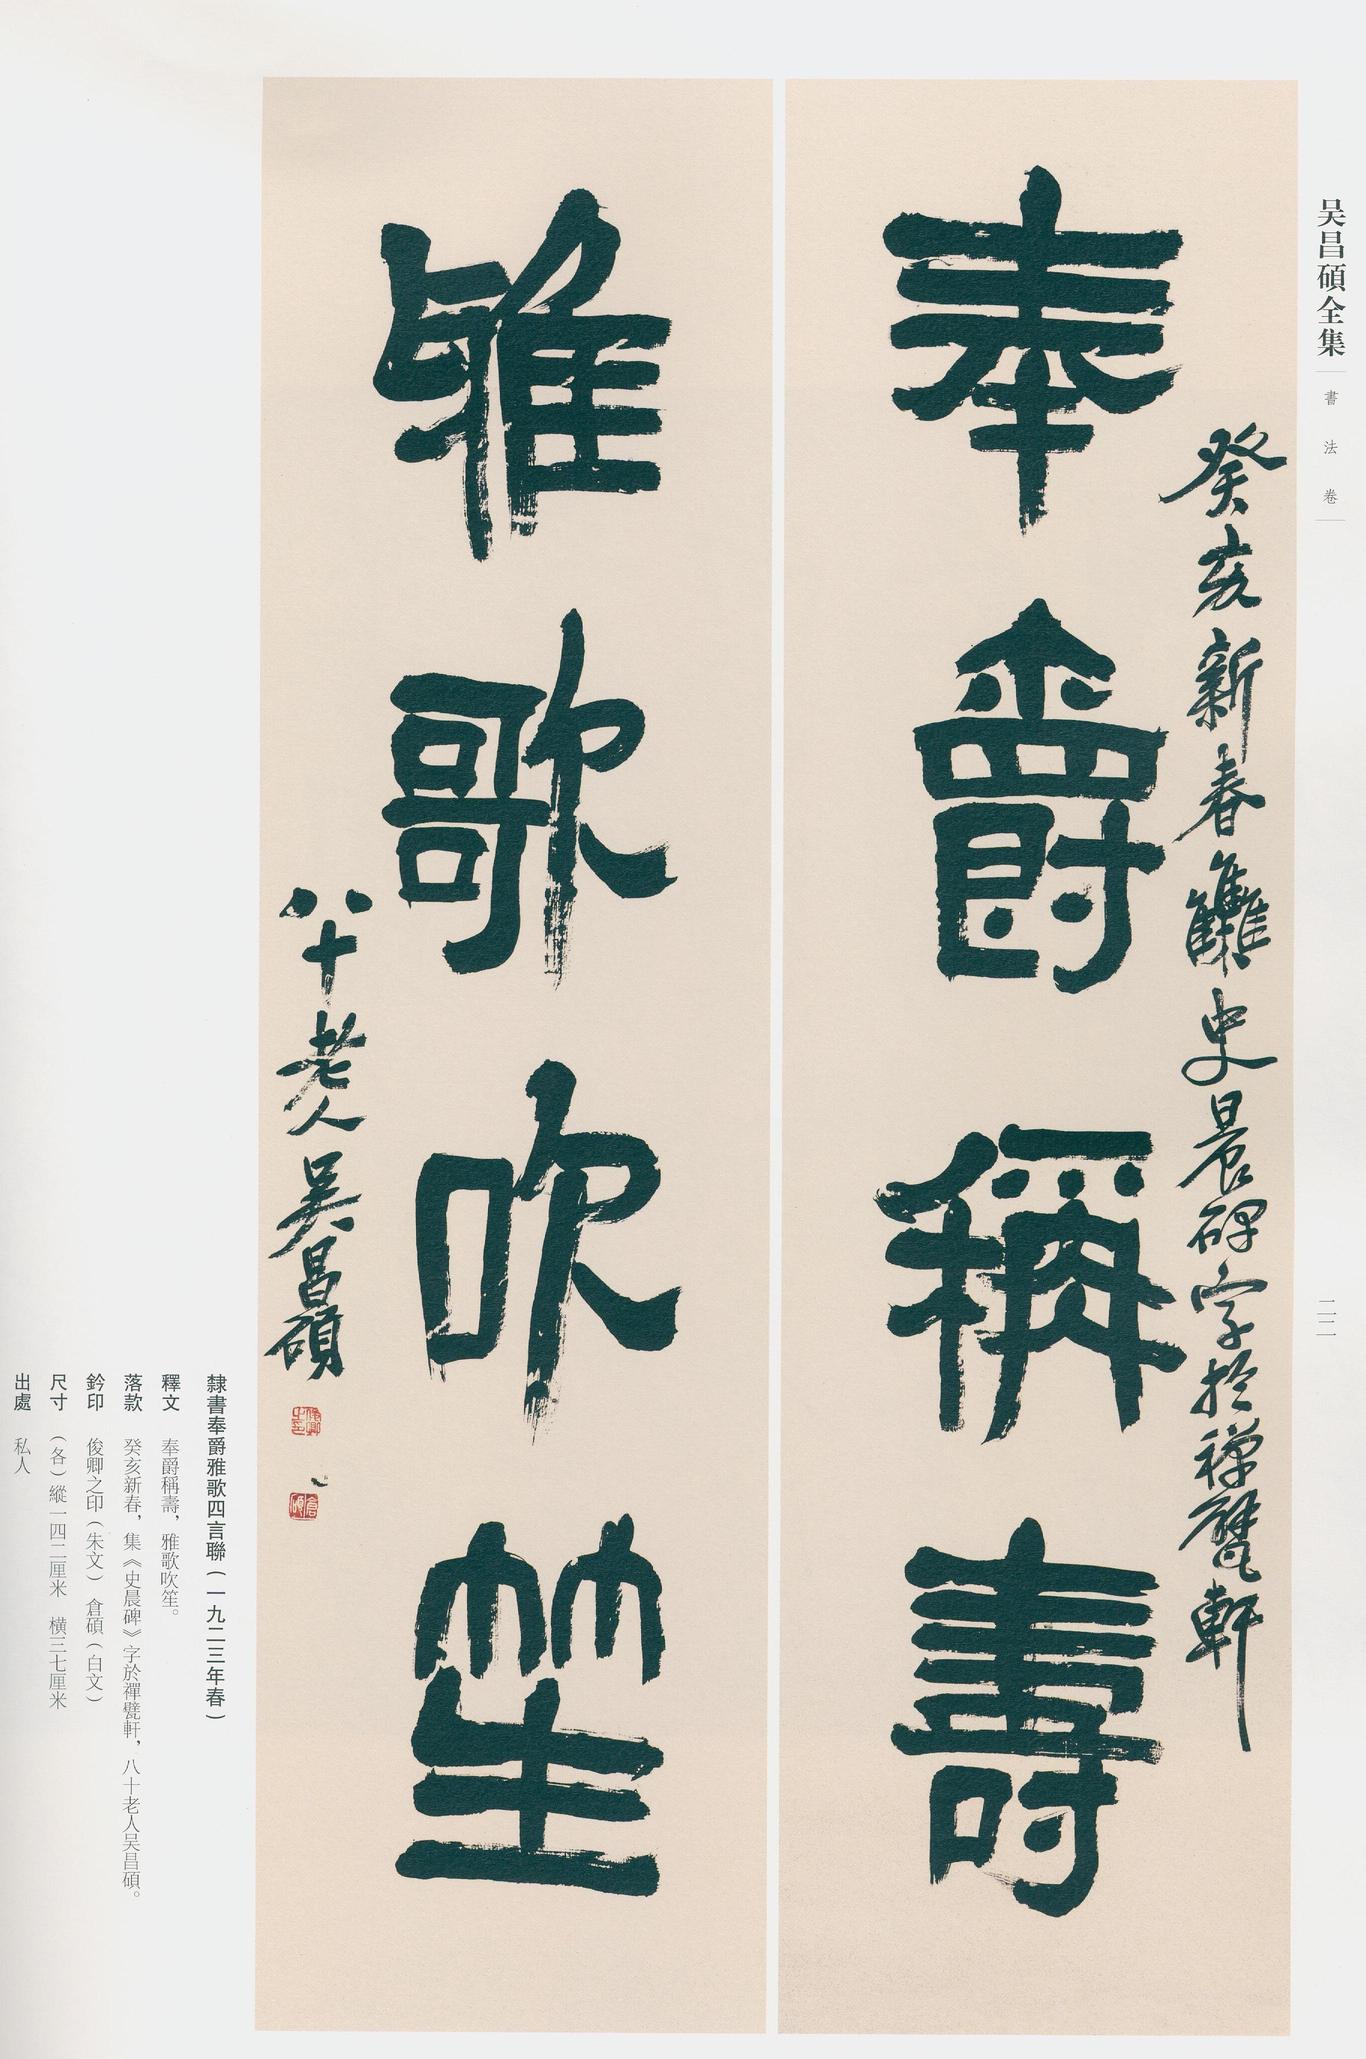 吴昌碩全集
書法卷
二一二
癸亥新春雧史晨碑字於禪甓軒
奉爵稱壽
雅歌吹笙
八十老人吴昌碩
俊卿之印
倉碩
隸書奉爵雅歌四言聯(一九二三年春)
釋文 奉爵稱壽,雅歌吹笙。
落款 癸亥新春,集《史晨碑》字於禪甓軒,八十老人吴昌碩。
鈐印 俊卿之印(朱文) 倉碩(白文)
尺寸 (各)縱一四二厘米 橫三七厘米
出處 私人